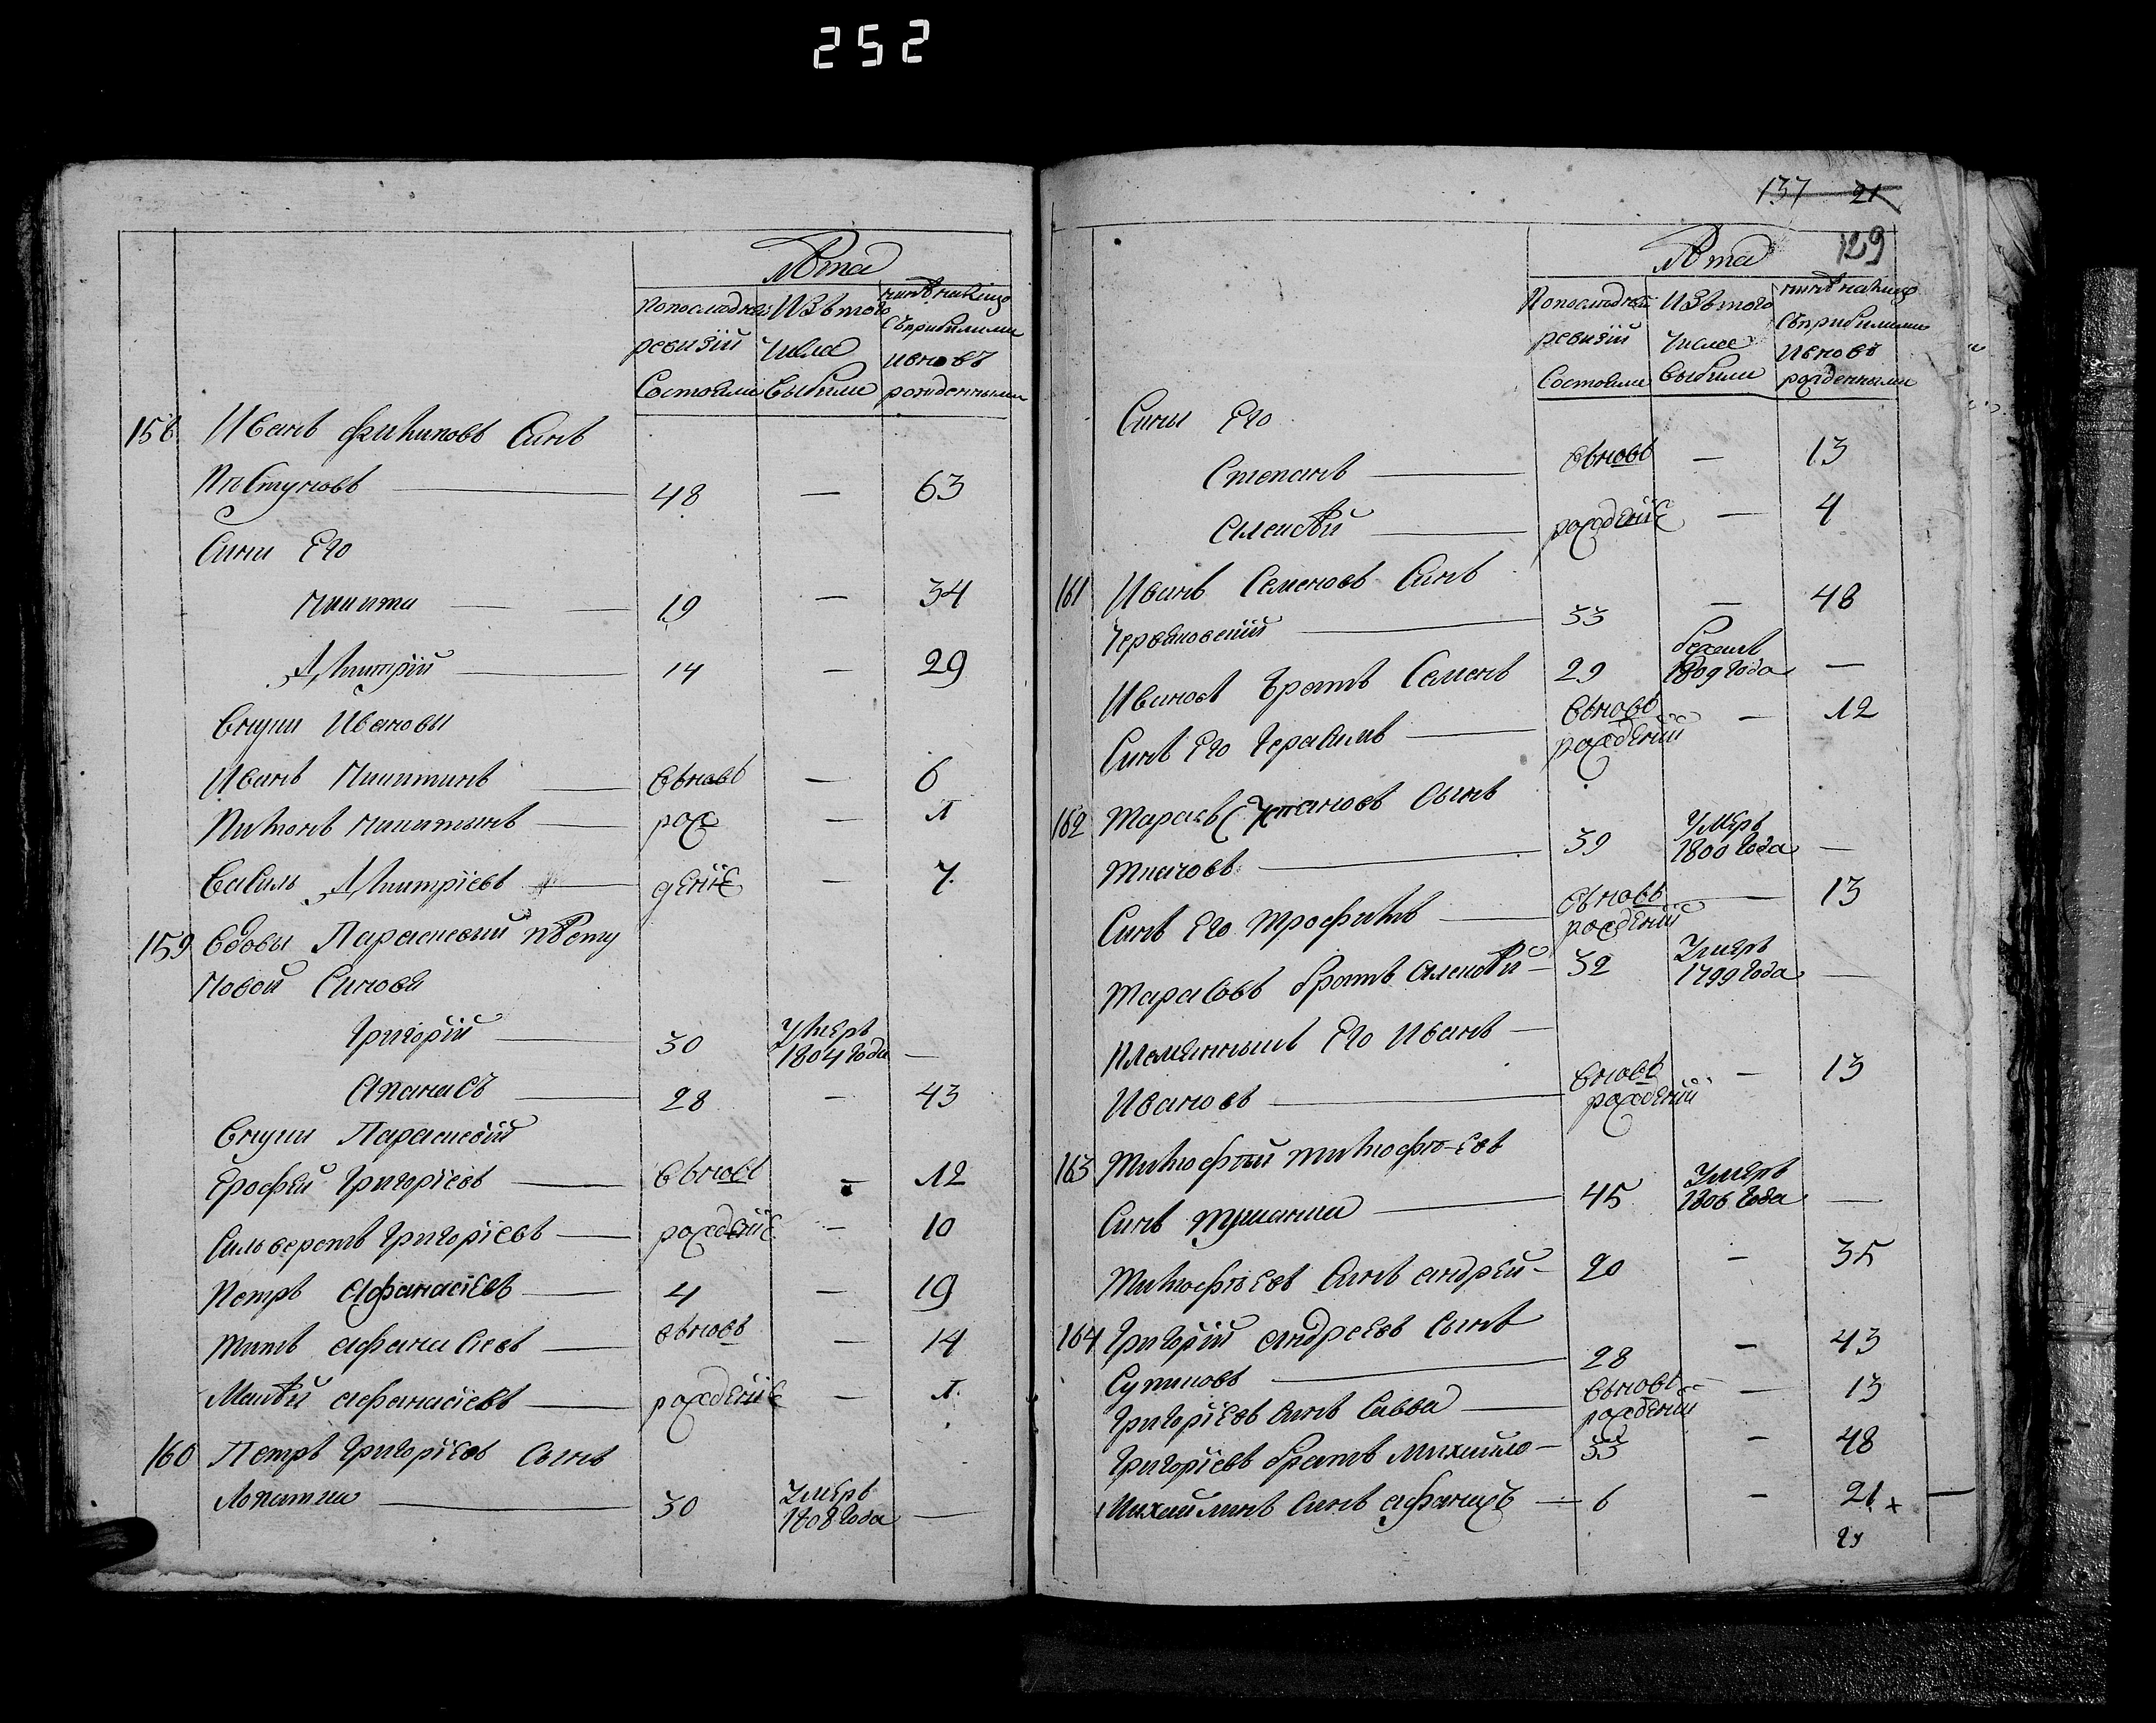 252
Лѣта
Попоследней
ревизїи
Состояли
Изътого
числа
выбыли
нынѣ налицо
съприбылыми
ивновь
рожденными
158 Иванъ Филиповъ Синъ
Пѣстуновъ — 48 — 63
Сини Его
Никита — 19 — 34
Дмитрїй — 14 — 29
Внуки Ивановы
Иванъ Никитинъ — Вьновь — 6
Никитинъ — рож — 1
Василь Дмитрїевъ — денїе — 7
159 Вдовы Параскевїи пѣсту
новой Синовя
Григорїй — 30 Умеръ 1804 года —
Апанасъ — 28 — 43
Внуки Параскевїи
Ерофей Григорїевъ — Вьновь — 12
Сильверстъ Григорїевъ — рожденїе — 10
Петръ Афанасїевъ — 4 — 19
Титъ Афанасиевъ — вьновь — 14
Матвѣй Афанасїевъ — рожденїе — 1
160 Петръ Григорїевъ Сынъ
Лопатки — 30 Умеръ 1808 года —
137 21
129
Лѣта
Попоследней
ревизїи
Состояли
Изътого
числа
выбыли
нынѣ налицо
съприбылыми
ивновь
рожденными
Сини Его
Степанъ — Вьновь — 13
Алексѣй — рожденїе — 4
161 Иванъ Семеновъ Синъ
Червяковскїй — 33 — 48
Ивановъ братъ Семенъ 29 бежалъ 1809 года —
Синъ Его Герасимъ — Вьновь рожденїи — 12
162 Тарасъ Степановъ Сынъ
39 Умеръ 1800 года —
Синъ Его Трофимъ — Вьновь рожденїи — 13
Тарасовъ братъ Алексѣй — 32 Умеръ 1799 года —
Племянникъ Его Иванъ —
Ивановъ — Вновь рожденїи — 13
163 Тимофѣй Тимофѣевъ
Синъ — 45 Умеръ 1806 года —
Тимофѣевъ Синъ Андрей — 20 — 35
164 Григорїй Андреевъ Сынъ
Супиковъ — 28 — 43
Григорїевъ Синъ Савва — Вьновь рожденїи — 13
Григорїевъ братъ Михайло — 33 — 48
Михайлинъ Синъ Афанасъ — 6 — 21 +
21